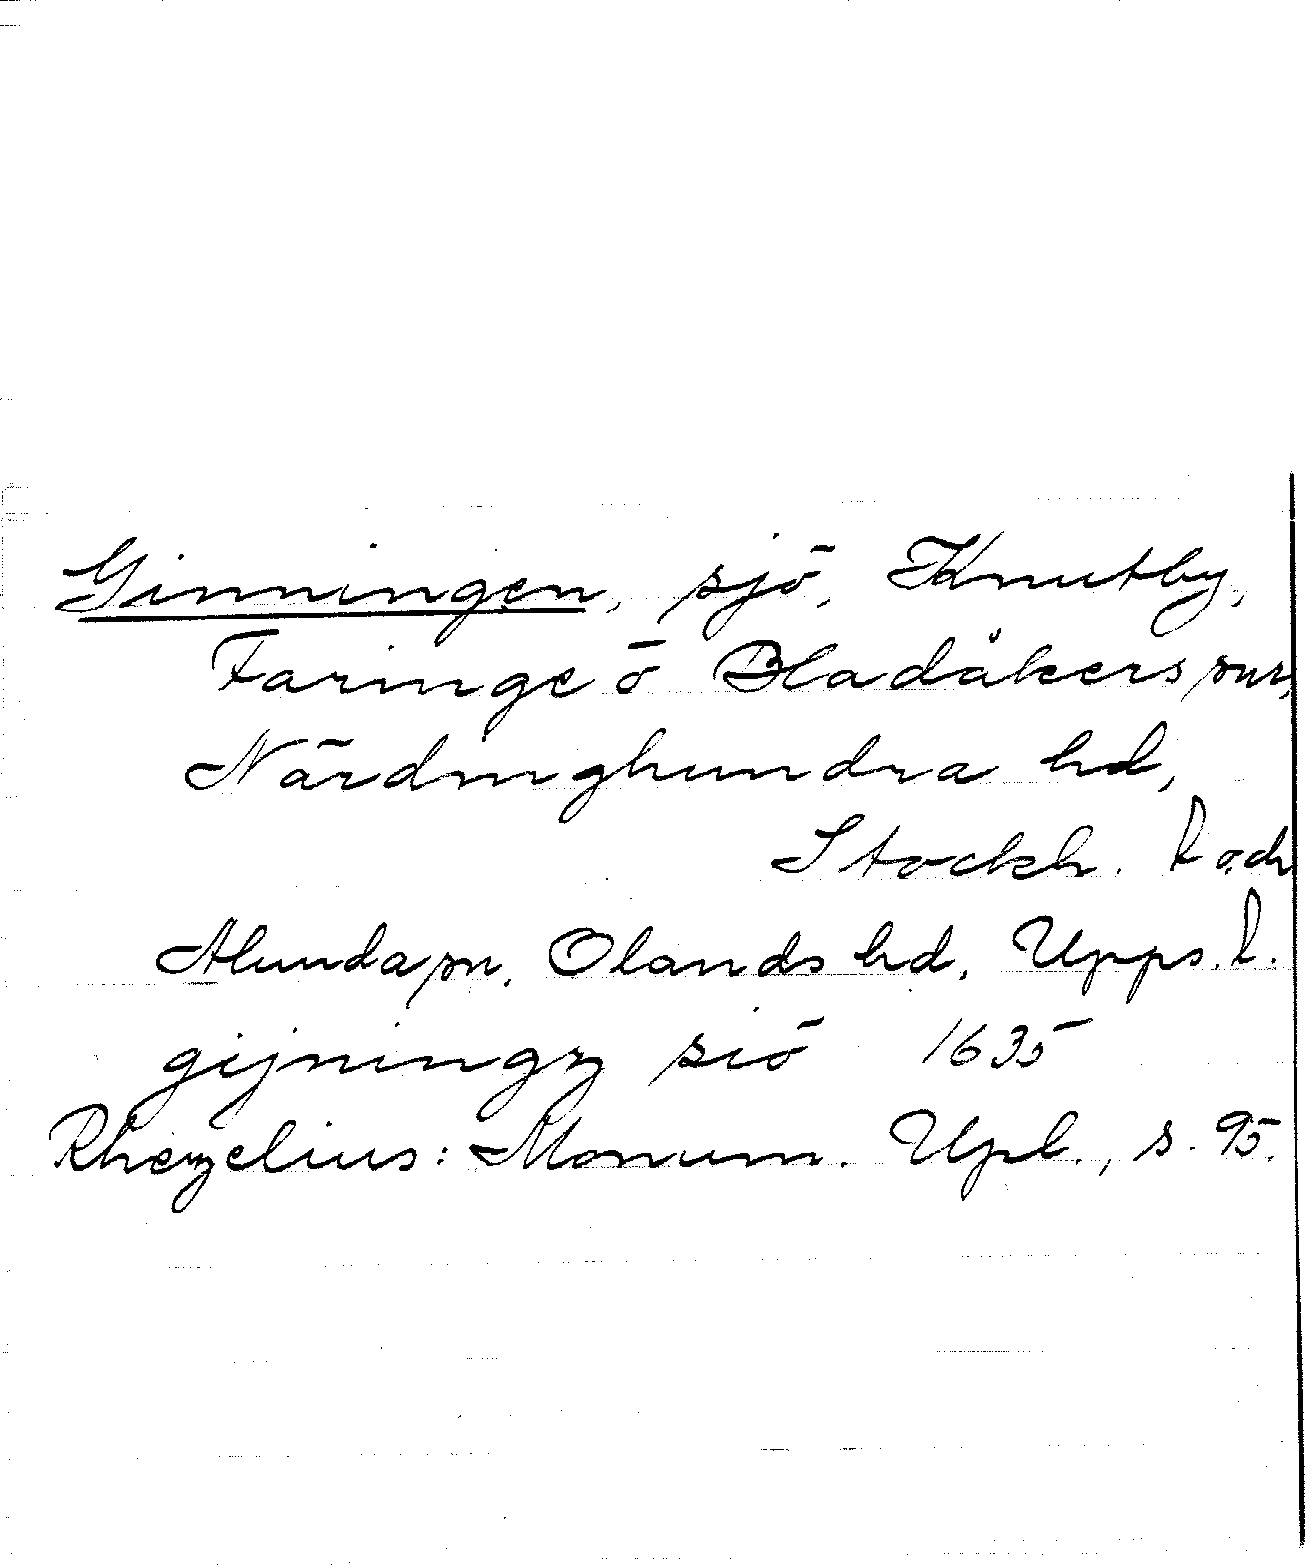 Ginningen, sjö, Knutby,
Faringe o Bladåkers snr,
Närdinghundra hd,
Stockh. l. och
Alunda sn, Olands hd, Upps. l.
gijningz siö 1635
Rhezelius: Monum. Upl., s. 95.